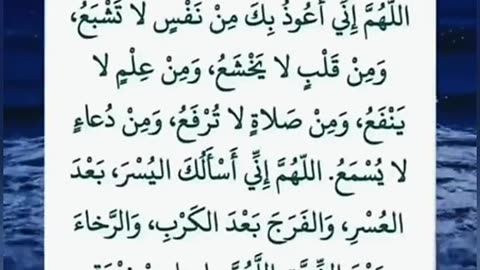 اللَّهُمَّ إِنِّي أَعُوذُ بِكَ مِنْ نَفْسٍ لَا تَشْبَعُ،
وَمِنْ قَلْبٍ لَا يَخْشَعُ، وَمِنْ عِلْمٍ لَا
يَنْفَعُ، وَمِنْ صَلَاةٍ لَا تُرْفَعُ، وَمِنْ دُعَاءٍ
لَا يُسْمَعُ. اللَّهُمَّ إِنِّي أَسْأَلُكَ اليُسْرَ، بَعْدَ
العُسْرِ، وَالفَرَجَ بَعْدَ الكَرْبِ، وَالرَّخَاءَ